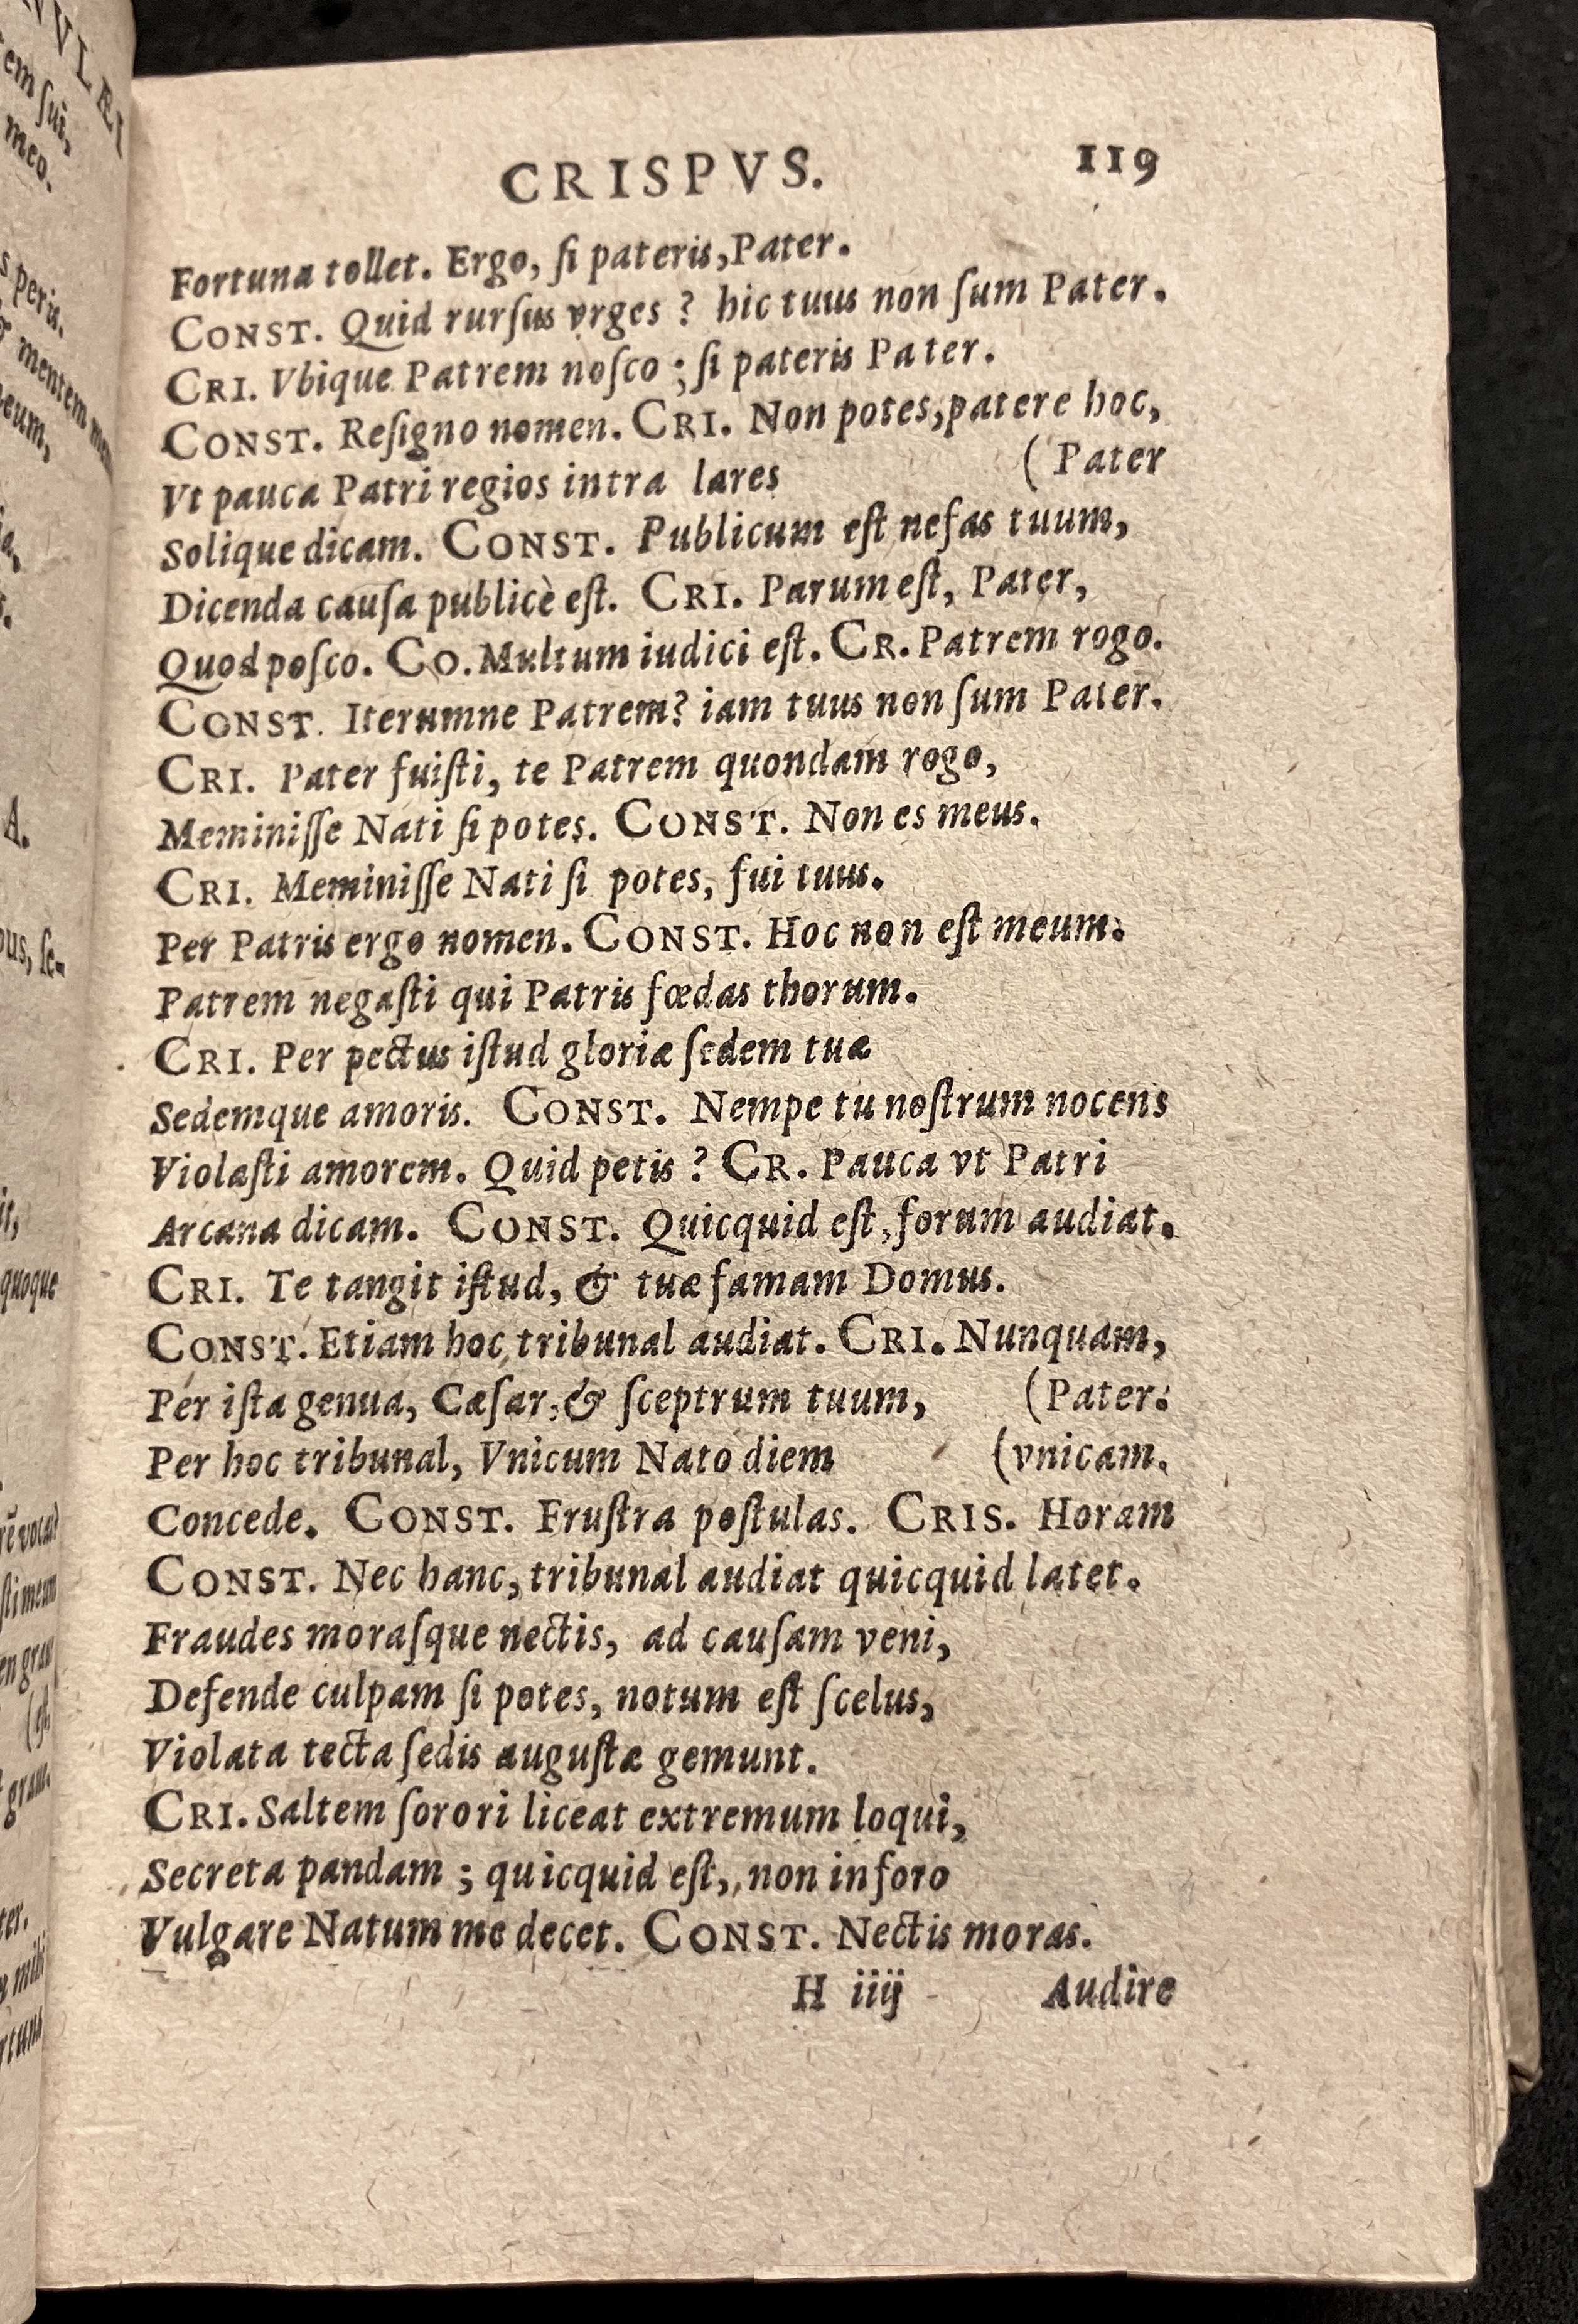 VLÆI
em ſui,
meo.
s peris.
mentem
eum,
A.
quoque
CRISPVS. 119
Fortuna tollet. Ergo, ſi pateris, Pater.
CONST. Quid rurſus vrges ? hic tuus non ſum Pater.
CRI. Vbique Patrem noſco ; ſi pateris Pater.
CONST. Reſigno nomen. CRI. Non potes, patere hoc,
Vt pauca Patri regios intra lares (Pater
Solique dicam. CONST. Publicum eſt nefas tuum,
Dicenda cauſa publicè eſt. CRI. Parum eſt, Pater,
Quod poſco. CO. Multum iudici eſt. CR. Patrem rogo.
CONST. Iterumne Patrem? iam tuus non ſum Pater.
CRI. Pater fuiſti, te Patrem quondam rogo,
Meminiſſe Nati ſi potes. CONST. Non es meus.
CRI. Meminiſſe Nati ſi potes, fui tuus.
Per Patris ergo nomen. CONST. Hoc non eſt meum:
Patrem negaſti qui Patris fœdas thorum.
CRI. Per pectus iſtud gloriæ ſedem tuæ
Sedemque amoris. CONST. Nempe tu noſtrum nocens
Violaſti amorem. Quid petis ? CR. Pauca vt Patri
Arcana dicam. CONST. Quicquid eſt, forum audiat.
CRI. Te tangit iſtud, & tuæ famam Domus.
CONST. Etiam hoc tribunal audiat. CRI. Nunquam,
Per iſta genua, Cæſar, & ſceptrum tuum, (Pater:
Per hoc tribunal, Vnicum Nato diem (vnicam.
Concede. CONST. Fruſtra poſtulas. CRIS. Horam
CONST. Nec hanc, tribunal audiat quicquid latet.
Fraudes moraſque nectis, ad cauſam veni,
Defende culpam ſi potes, notum eſt ſcelus,
Violata tecta ſedis auguſtæ gemunt.
CRI. Saltem ſorori liceat extremum loqui,
Secreta pandam ; quicquid eſt, non in foro
Vulgare Natum me decet. CONST. Nectis moras.
H iiij Audire